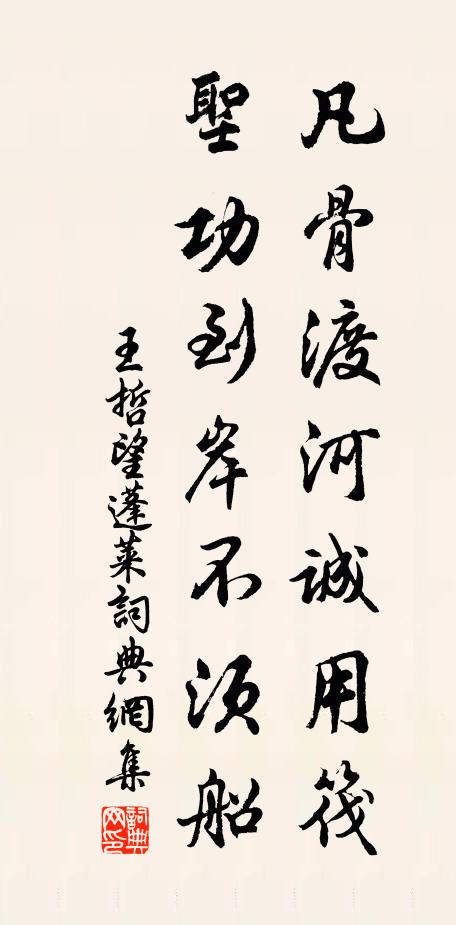 凡骨渡河誠用筏
聖功到岸不須船
王哲望蓬萊詞典網集
詞典網印